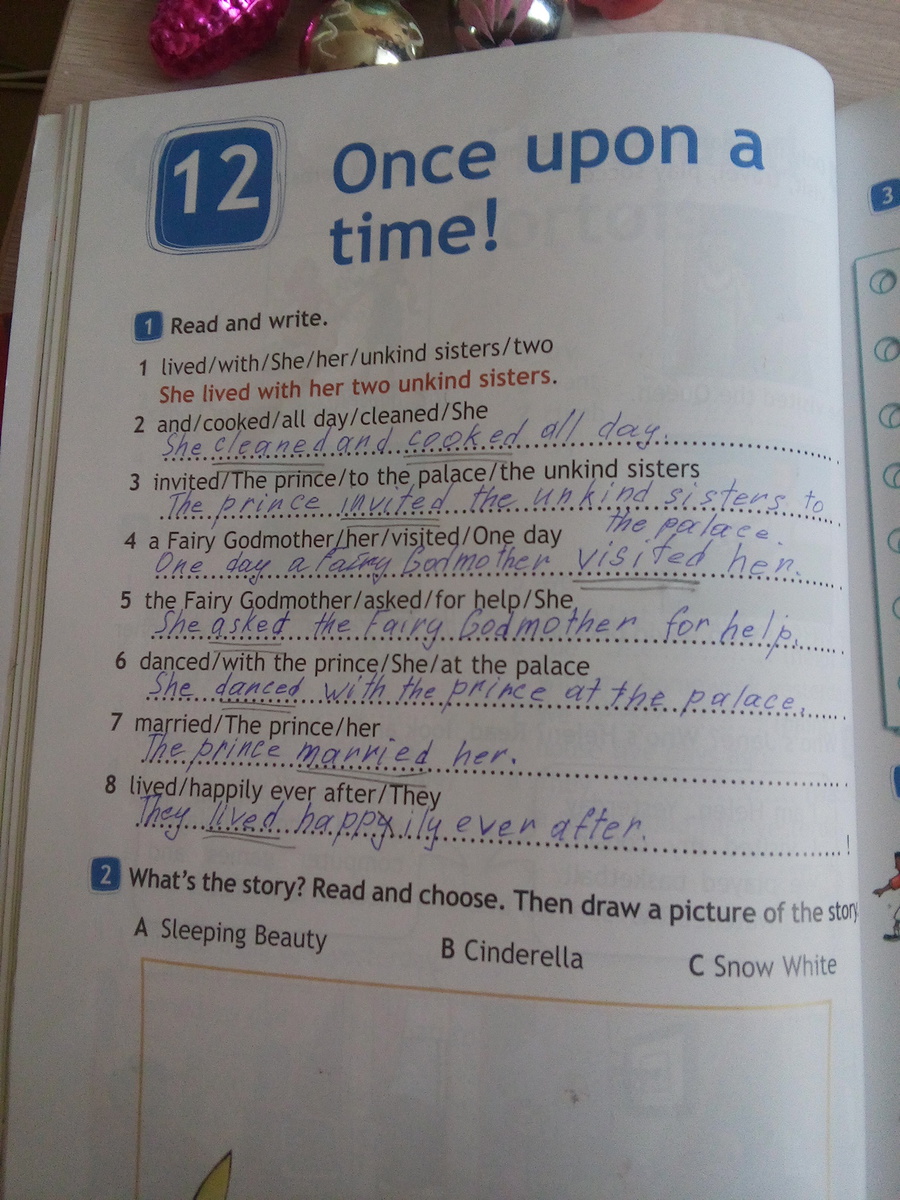 12
Once upon a
time!
3
1 Read and write.
1 lived/with/She/her/unkind sisters/two
She lived with her two unkind sisters.
2 and/cooked/all day/cleaned/She
She cleaned and cooked all day.
3 invited/The prince/to the palace/the unkind sisters
The prince invited the unkind sisters to
the palace.
4 a Fairy Godmother/her/visited/One day
One day a Fairy Godmother visited her.
5 the Fairy Godmother/asked/for help/She
She asked the Fairy Godmother for help.
6 danced/with the prince/She/at the palace
She danced with the prince at the palace.
7 married/The prince/her
The prince married her.
8 lived/happily ever after/They
They lived happyily ever after. !
2 What's the story? Read and choose. Then draw a picture of the story
A Sleeping Beauty
B Cinderella
C Snow White